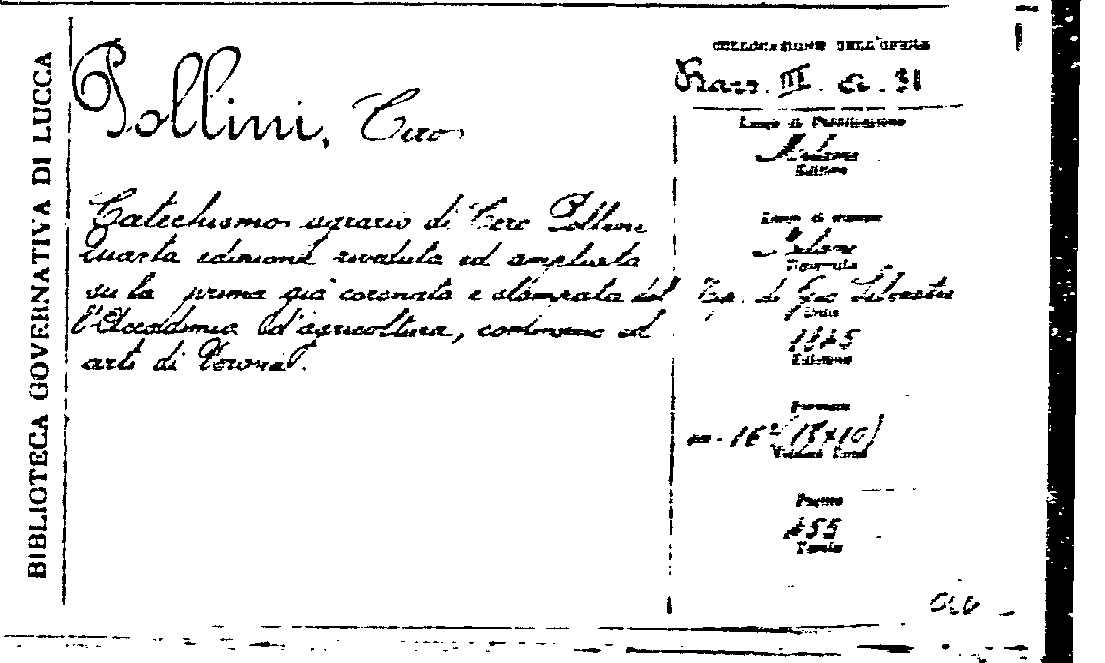 BIBLIOTECA GOVERNATIVA DI LUCCA
Pollini, Ciro
Catechismo agrario di Ciro Pollini
quarta edizione riveduta ed ampliata
su la prima già coronata e stampata dal
l'Accademia d'agricoltura, commercio ed
arti di Verona.
COLLOCAZIONE DELL'OPERA
III. 31
Luogo di Pubblicazione
Milano
Editore
Luogo di stampa
Milano
Tipografia
Tip. di Gio Silvestri
Anno
1845
Edizione
Formato
in-16º (15x10)
Volumi Tomi
Pagine
455
Tavole